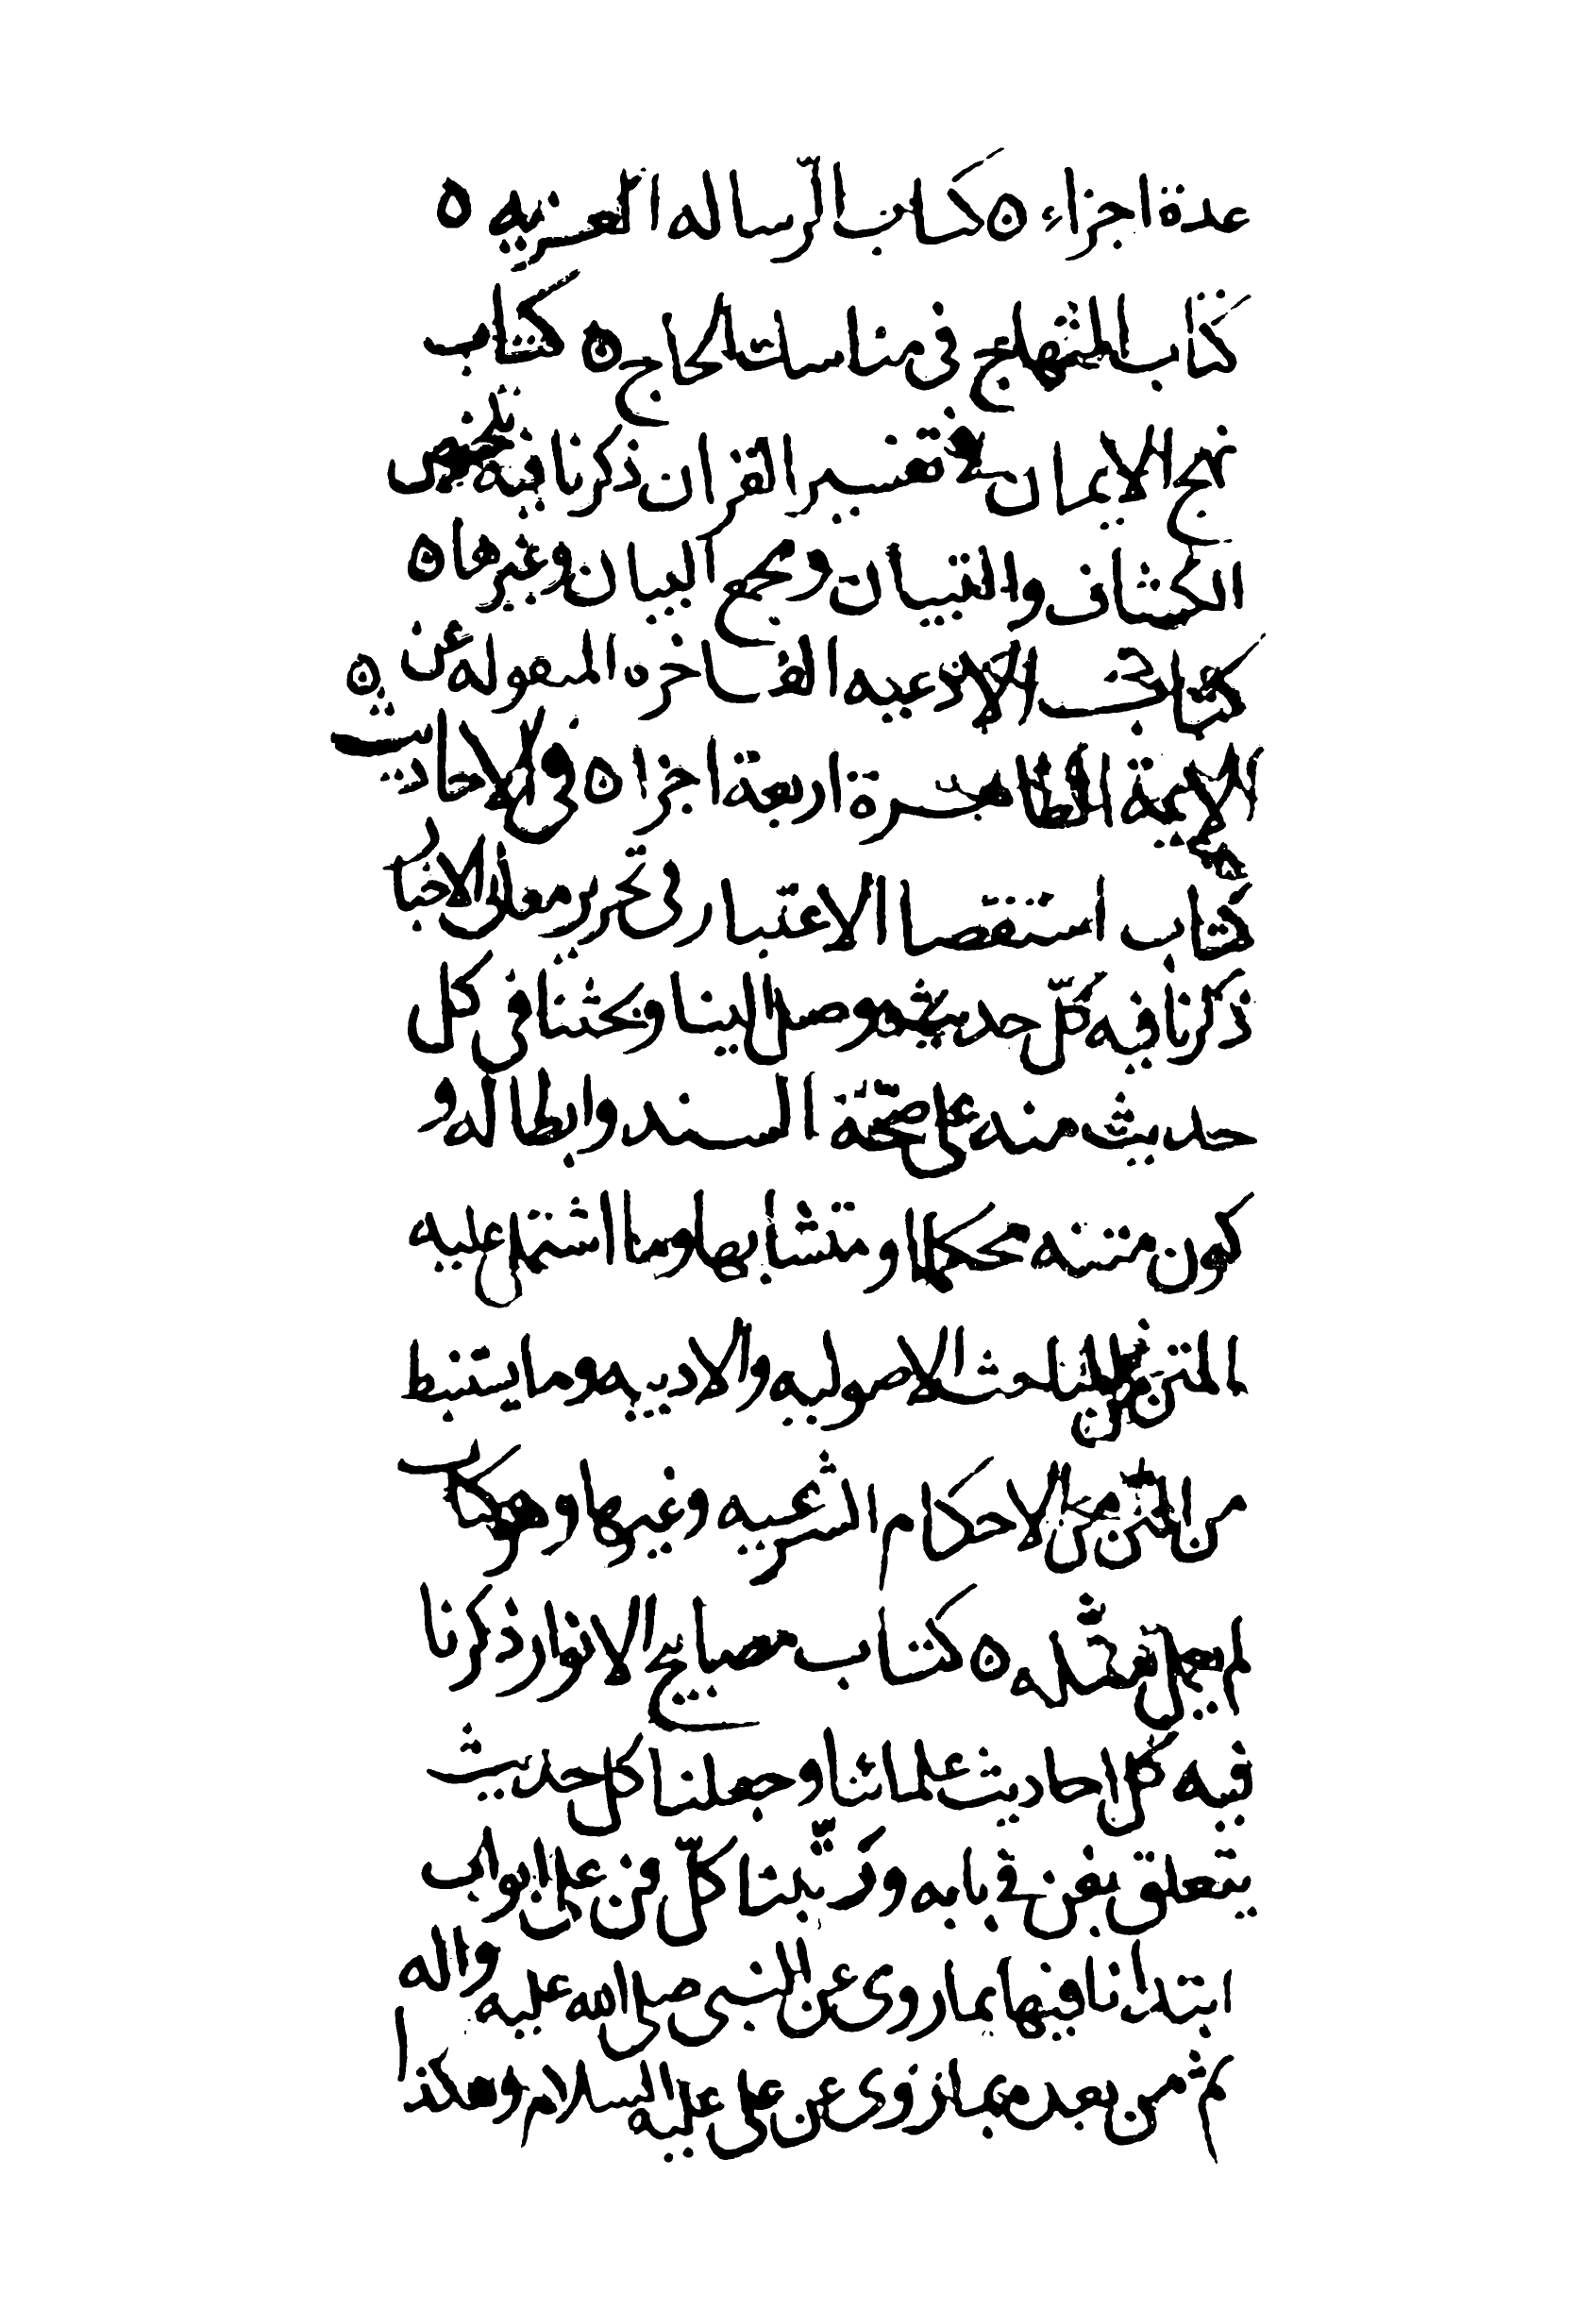 عدة اجزاء ه كتاب الرّساله العزيه ه
كتاب المنهاج فى مناسك الحاج ه كتاب
نهج الايمان فى تفسير القران ذكرنا فيه ملخص
الكشاف والتبيان ومجمع البيان وغيرها ه
كتاب الادعيه الفاخره المنقوله عن ه
الايمة الطاهرة اربعة اجزا ه فى الاحاديث
كتاب استقصا الاعتبار فى تحرير معانى الاخبا
ذكرنا فيه كلّ حديث وصل الينا وبحثنا فى كل
حديث منه على صحّة السند وابطاله و
كون متنه محكما او متشابها وما اشتمل عليه
المتن من المباحث الاصوليه والادبيه وما يستنبط
من المتن من الاحكام الشرعيه وغيرها وهو كتاب
لم يعمل مثله ه كتاب مصابيح الانوار ذكرنا
فيه كل احاديث علمائنا وجعلنا كل حديث
يتعلق بفن فى بابه ورتّبنا كلّ فن على ابواب
ابتدانا فيها بما روى عن النبى صلى الله عليه واله
ثم من بعده بما روى عن على عليه السلام وهكذا